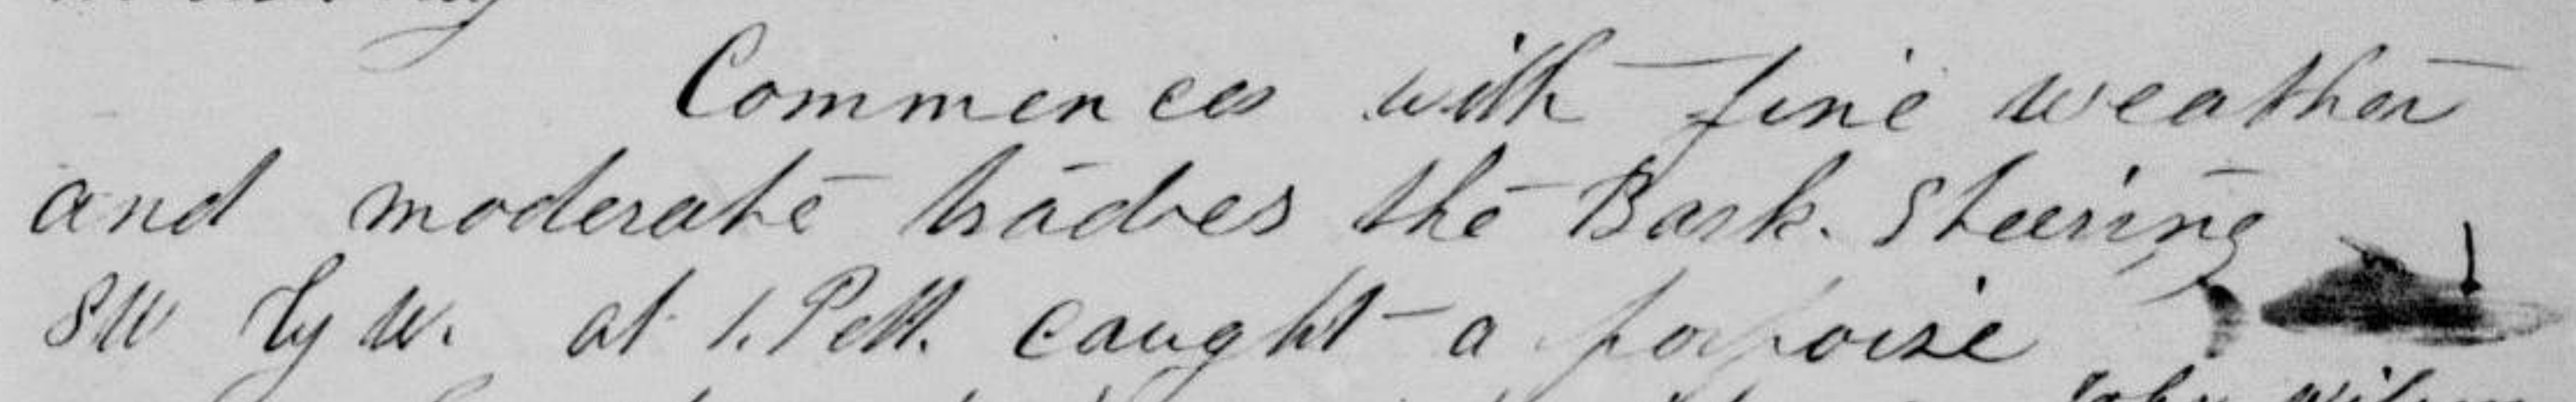 Commences with fine weather
and moderate trades the Bark. Steering
SW by W. at 1. P.M. caught a porpoise